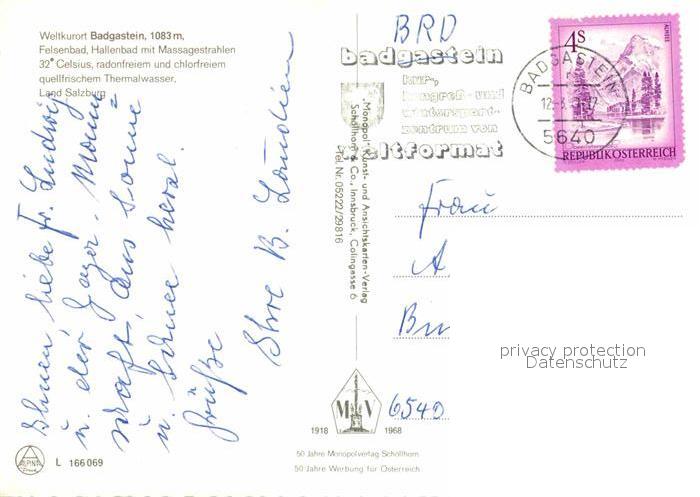 Weltkurort Badgastein, 1083 m,
Felsenbad, Hallenbad mit Massagestrahlen
32° Celsius, radonfreiem und chlorfreiem
quellfrischem Thermalwasser,
Land Salzburg
Ihnen, liebe Fr. Ludwig
u. der Jäger-Mann=
schaft, aus Sonne
u. Schnee herzl.
Grüße
Ihre B.
L 166 069
ALPINA
Druck
BRD
badgastein
kur-,
kongreß- und
wintersport-
zentrum von
weltformat
Monopol - Kunst- und Ansichtskarten-Verlag
Schöllhorn & Co., Innsbruck, Colingasse 6
Tel. Nr. 05222/29816
BADGASTEIN
5640
4S
ALMSEE
REPUBLIK ÖSTERREICH
Frau
A
Bu
6540
privacy protection
Datenschutz
M V
1918 1968
50 Jahre Monopolverlag Schöllhorn
50 Jahre Werbung für Österreich